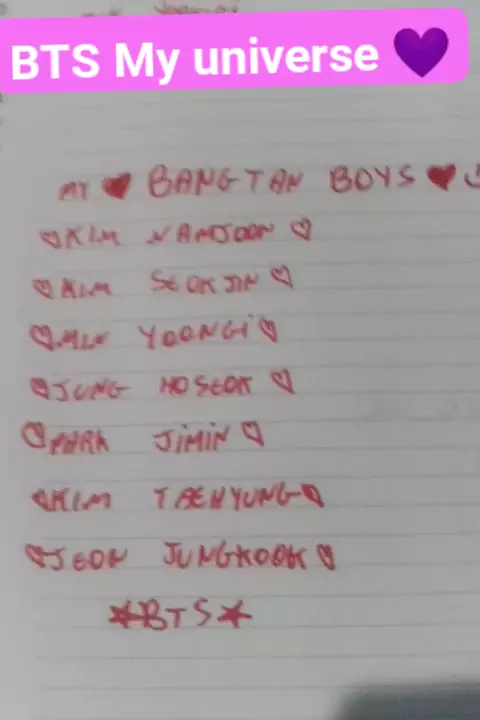 BTS My universe 💜
MY ♥ BANGTAN BOYS ♥
♡KIM NAMJOON ♡
♡KIM SEOKJIN ♡
♡MIN YOONGI♡
♡JUNG HOSEOK ♡
♡PARK JIMIN ♡
♡KIM TAEHYUNG♡
♡JEON JUNGKOOK♡
★BTS★